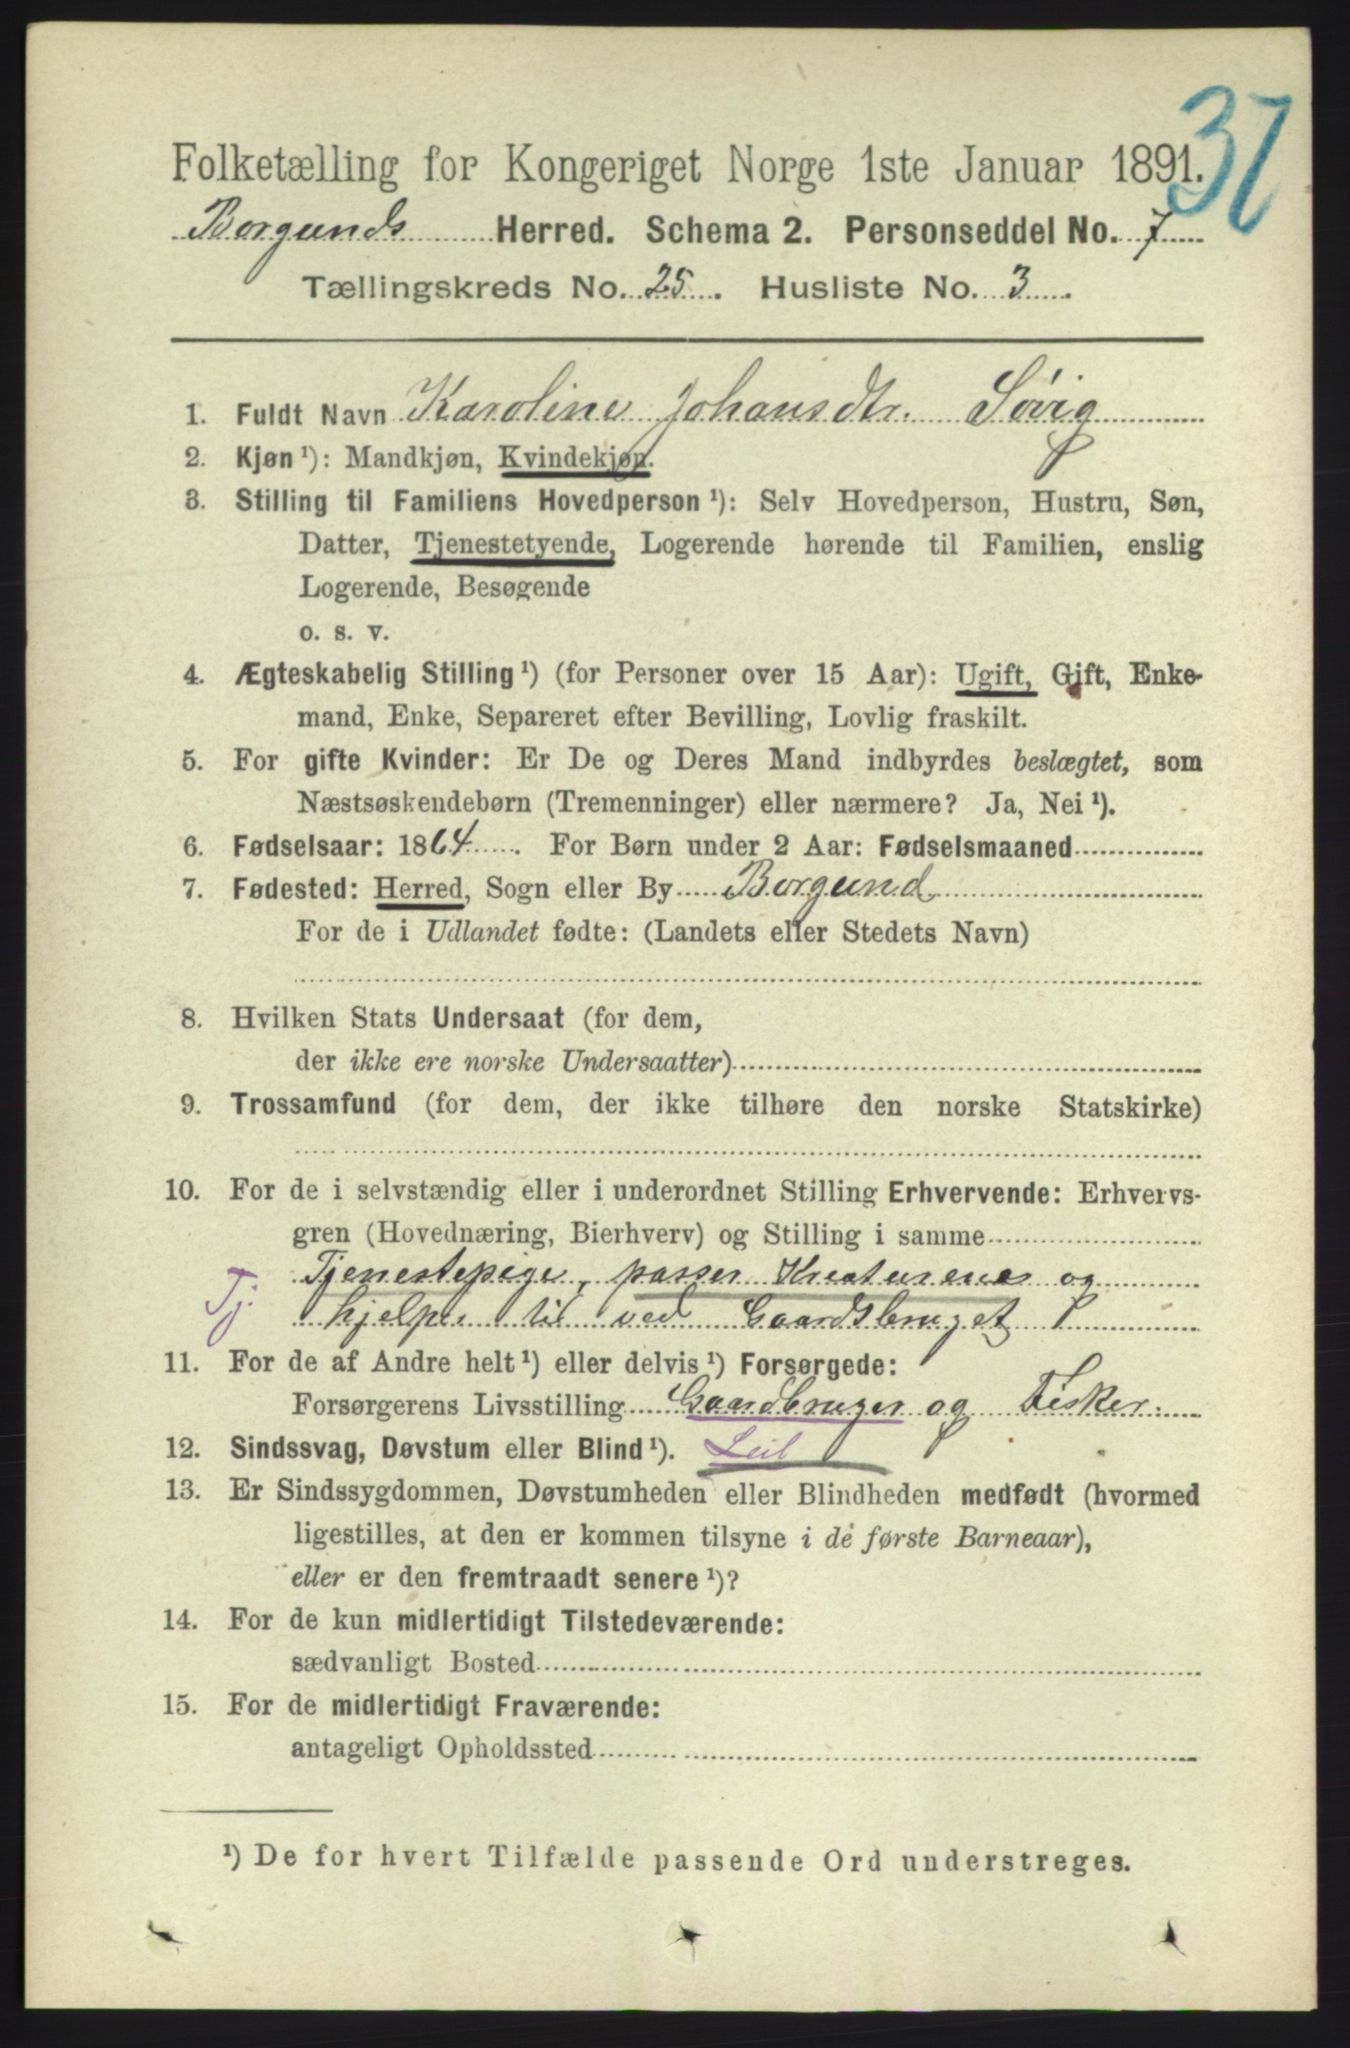 37
Folketælling for Kongeriget Norge 1ste Januar 1891.
Borgunds Herred. Schema 2. Personseddel No. 7
Tællingskreds No. 25. Husliste No. 3.
1. Fuldt Navn Karoline Johansdtr. Søvig
2. Kjøn ¹): Mandkjøn, Kvindekjøn.
3. Stilling til Familiens Hovedperson ¹): Selv Hovedperson, Hustru, Søn,
Datter, Tjenestetyende, Logerende hørende til Familien, enslig
Logerende, Besøgende
o. s. v.
4. Ægteskabelig Stilling ¹) (for Personer over 15 Aar): Ugift, Gift, Enke-
mand, Enke, Separeret efter Bevilling, Lovlig fraskilt.
5. For gifte Kvinder: Er De og Deres Mand indbyrdes beslægtet, som
Næstsøskendebørn (Tremenninger) eller nærmere? Ja, Nei ¹).
6. Fødselsaar: 1864. For Børn under 2 Aar: Fødselsmaaned
7. Fødested: Herred, Sogn eller By Borgund
For de i Udlandet fødte: (Landets eller Stedets Navn)
8. Hvilken Stats Undersaat (for dem,
der ikke ere norske Undersaatter)
9. Trossamfund (for dem, der ikke tilhøre den norske Statskirke)
10. For de i selvstændig eller i underordnet Stilling Erhvervende: Erhvervs-
gren (Hovednæring, Bierhverv) og Stilling i samme
Tjenestepige, passer Kreaturene og
Tj. hjelper til ved Gaardsbruget
11. For de af Andre helt ¹) eller delvis ¹) Forsørgede:
Forsørgerens Livsstilling Gaardbruger og Fisker.
12. Sindssvag, Døvstum eller Blind ¹). Leil
13. Er Sindssygdommen, Døvstumheden eller Blindheden medfødt (hvormed
ligestilles, at den er kommen tilsyne i de første Barneaar),
eller er den fremtraadt senere ¹)?
14. For de kun midlertidigt Tilstedeværende:
sædvanligt Bosted
15. For de midlertidigt Fraværende:
antageligt Opholdssted
¹) De for hvert Tilfælde passende Ord understreges.